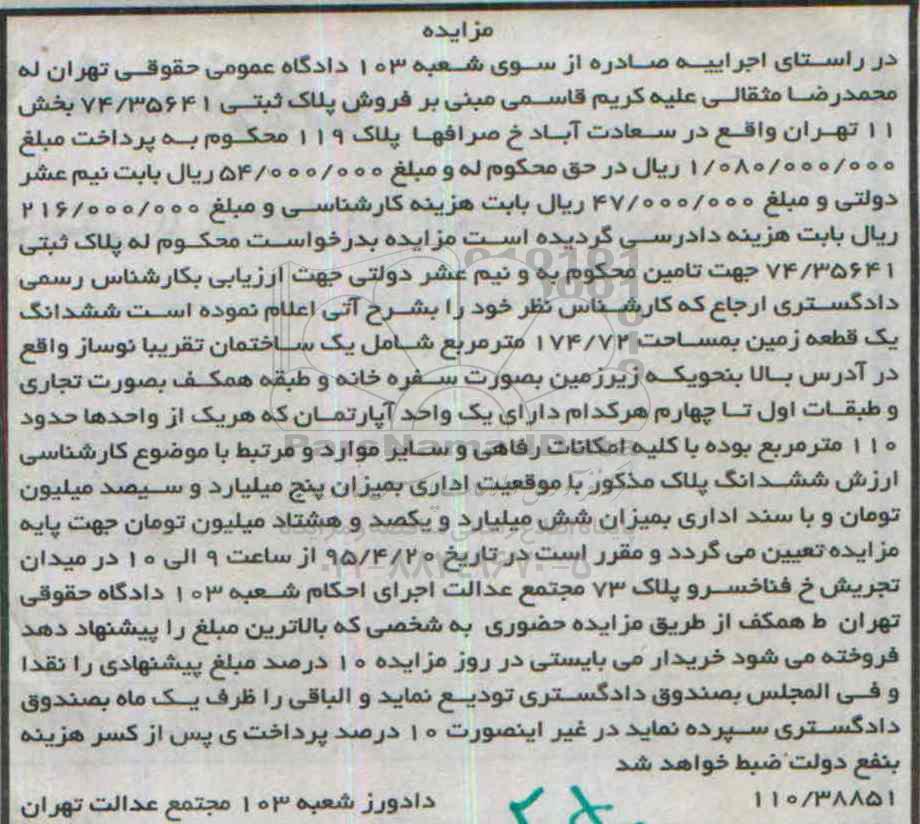 مزایده
در راستای اجراییه صادره از سوی شعبه ۱۰۳ دادگاه عمومی حقوقی تهران له
محمدرضا مثقالی علیه کریم قاسمی مبنی بر فروش پلاک ثبتی ۷۴/۳۵۶۴۱ بخش
۱۱ تهران واقع در سعادت آباد خ صرافها پلاک ۱۱۹ محکوم به پرداخت مبلغ
۱/۰۸۰/۰۰۰/۰۰۰ ریال در حق محکوم له و مبلغ ۵۴/۰۰۰/۰۰۰ ریال بابت نیم عشر
دولتی و مبلغ ۴۷/۰۰۰/۰۰۰ ریال بابت هزینه کارشناسی و مبلغ ۲۱۶/۰۰۰/۰۰۰
ریال بابت هزینه دادرسی گردیده است مزایده بدرخواست محکوم له پلاک ثبتی
۷۴/۳۵۶۴۱ جهت تامین محکوم به و نیم عشر دولتی جهت ارزیابی بکارشناس رسمی
دادگستری ارجاع که کارشناس نظر خود را بشرح آتی اعلام نموده است ششدانگ
یک قطعه زمین بمساحت ۱۷۴/۷۲ مترمربع شامل یک ساختمان تقریبا نوساز واقع
در آدرس بالا بنحویکه زیرزمین بصورت سفره خانه و طبقه همکف بصورت تجاری
و طبقات اول تا چهارم هرکدام دارای یک واحد آپارتمان که هریک از واحدها حدود
۱۱۰ مترمربع بوده با کلیه امکانات رفاهی و سایر موارد و مرتبط با موضوع کارشناسی
ارزش ششدانگ پلاک مذکور با موقعیت اداری بمیزان پنج میلیارد و سیصد میلیون
تومان و با سند اداری بمیزان شش میلیارد و یکصد و هشتاد میلیون تومان جهت پایه
مزایده تعیین می گردد و مقرر است در تاریخ ۹۵/۴/۲۰ از ساعت ۹ الی ۱۰ در میدان
تجریش خ فناخسرو پلاک ۷۳ مجتمع عدالت اجرای احکام شعبه ۱۰۳ دادگاه حقوقی
تهران ط همکف از طریق مزایده حضوری به شخصی که بالاترین مبلغ را پیشنهاد دهد
فروخته می شود خریدار می بایستی در روز مزایده ۱۰ درصد مبلغ پیشنهادی را نقدا
و فی المجلس بصندوق دادگستری تودیع نماید و الباقی را ظرف یک ماه بصندوق
دادگستری سپرده نماید در غیر اینصورت ۱۰ درصد پرداخت ی پس از کسر هزینه
بنفع دولت ضبط خواهد شد
۱۱۰/۳۸۸۵۱ دادورز شعبه ۱۰۳ مجتمع عدالت تهران